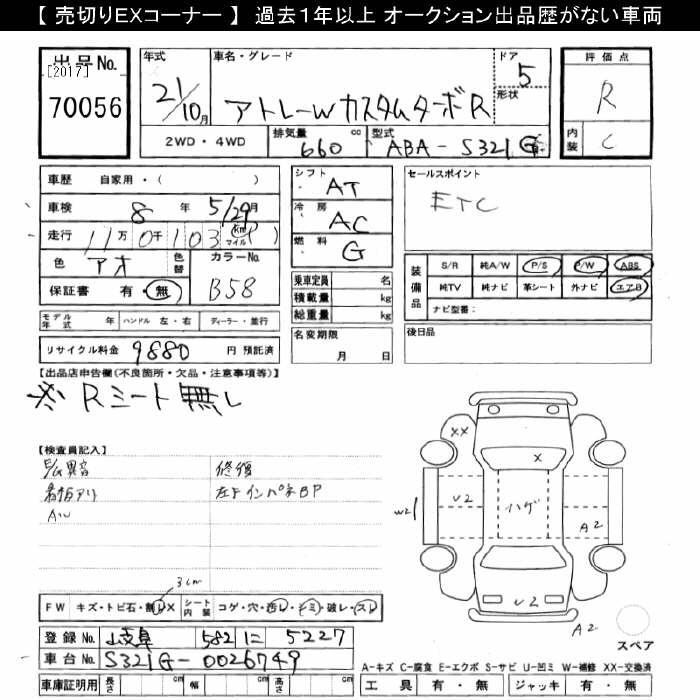 【 売切りEXコーナー 】 過去1年以上 オークション出品歴がない車両
出品No.
[2017]
70056
年式
21/10月
車名・グレード
アトレーW カスタムターボR
ドア
5
形状
評価点
R
内装
C
2WD・4WD
排気量
660
cc
型式
ABA-S321G
車歴
自家用・( )
車検
8 年 5/29月
走行
11万0千103 km マイル
色
アオ
色替
カラーNo.
B58
保証書
有・無
モデル年式
年
ハンドル
左・右
ディーラー・並行
リサイクル料金
9880
円 預託済
シフト
AT
冷房
AC
燃料
G
乗車定員
名
積載量
kg
総重量
kg
名変期限
月 日
セールスポイント
ETC
装備品
S/R 純A/W P/S P/W ABS
純TV 純ナビ 革シート 外ナビ エアB
ナビ型番:
後日品
【出品店申告欄(不良箇所・欠品・注意事項等)】
※ Rシート無し
【検査員記入】
E/G異音
修復
左F インパネBP
AW
3cm
FW
キズ・トビ石・割レX
シート内装
コゲ・穴・汚レ・シミ・破レ・スレ
登録No.
岐阜 582 に 5227
車台No.
S321G-0026749
車庫証明用
長さ
cm
幅
cm
高さ
cm
XX
X
U2
ハゲ
W2
A2
U2
A2
スペア
A-キズ C-腐食 E-エクボ S-サビ U-凹ミ W-補修 XX-交換済
工具
有・無
ジャッキ
有・無